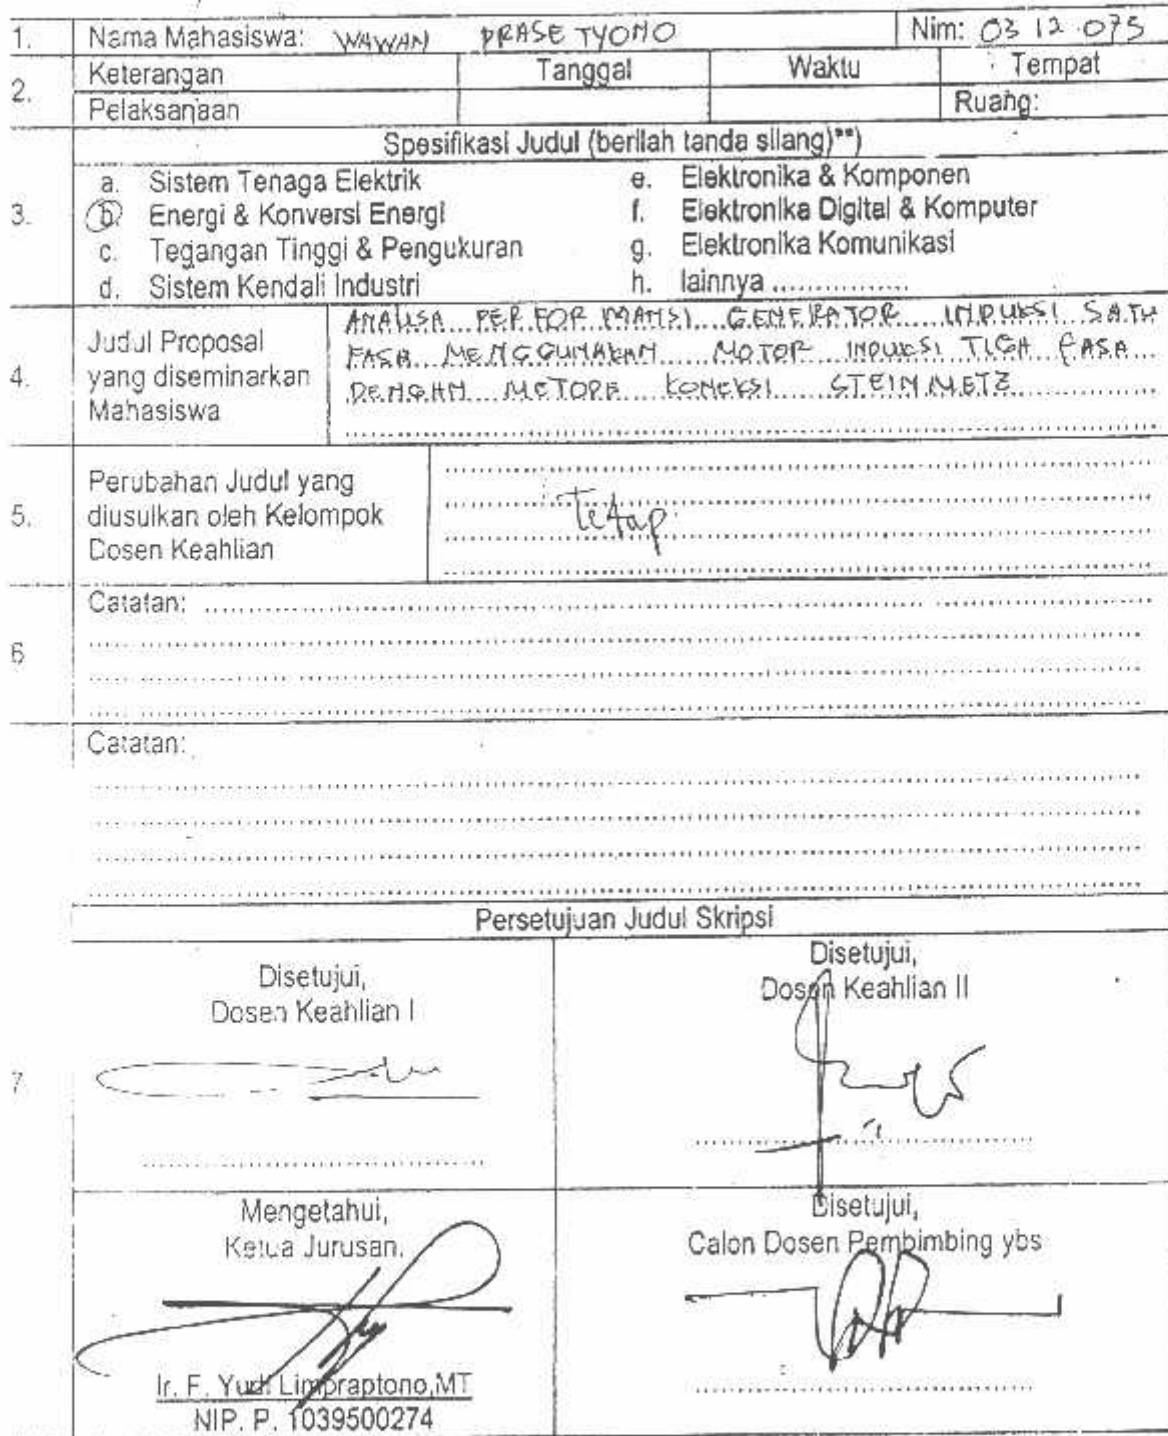 1. Nama Mahasiswa: WAWAN PRASETYONO Nim: 03 12 075
2. Keterangan Pelaksanaan Tanggal Waktu Tempat
Ruang:
3. Spesifikasi Judul (berilah tanda silang)**)
a. Sistem Tenaga Elektrik e. Elektronika & Komponen
b. Energi & Konversi Energi f. Elektronika Digital & Komputer
c. Tegangan Tinggi & Pengukuran g. Elektronika Komunikasi
d. Sistem Kendali Industri h. lainnya ...............
4. Judul Proposal yang diseminarkan Mahasiswa
ANALISA PERFORMANSI GENERATOR INDUKSI SATU
FASA MENGGUNAKAN MOTOR INDUKSI TIGA FASA
DENGAN METODE KONEKSI STEINMETZ
5. Perubahan Judul yang diusulkan oleh Kelompok Dosen Keahlian
Tetap
6 Catatan:
Catatan:
Persetujuan Judul Skripsi
7. Disetujui,
Dosen Keahlian I
Disetujui,
Dosen Keahlian II
Mengetahui,
Ketua Jurusan,
Ir. F. Yudi Limpraptono,MT
NIP. P. 1039500274
Disetujui,
Calon Dosen Pembimbing ybs